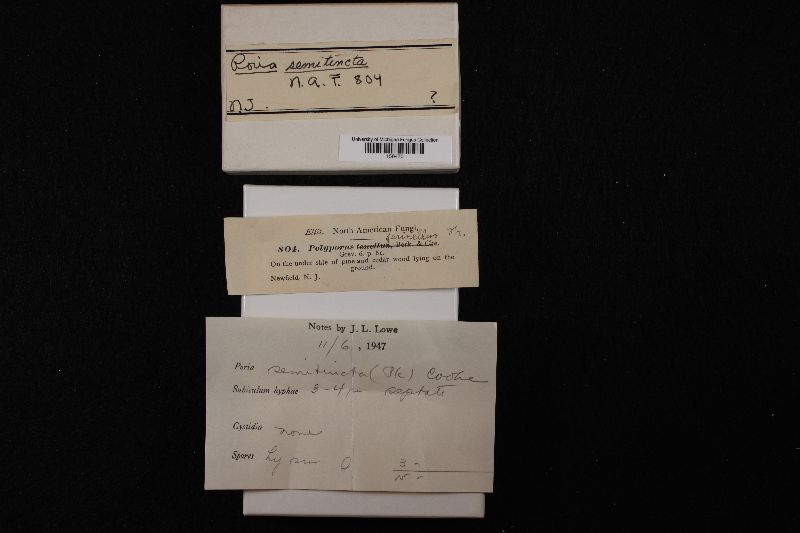 Poria semitincta
N. A. F. 804
N.J. ?
University of Michigan Fungus Collection
Ellis. North American Fungi.
804. Polyporus tenellus, Berk. & Cke.
Grev. 6. p.
On the under side of pine and cedar wood lying on the
ground.
Newfield, N. J.
Notes by J. L. Lowe
11/6, 1947
Poria semitincta (Pk) Cooke
Subiculum hyphae 3-4µ septate
Cystidia none
Spores